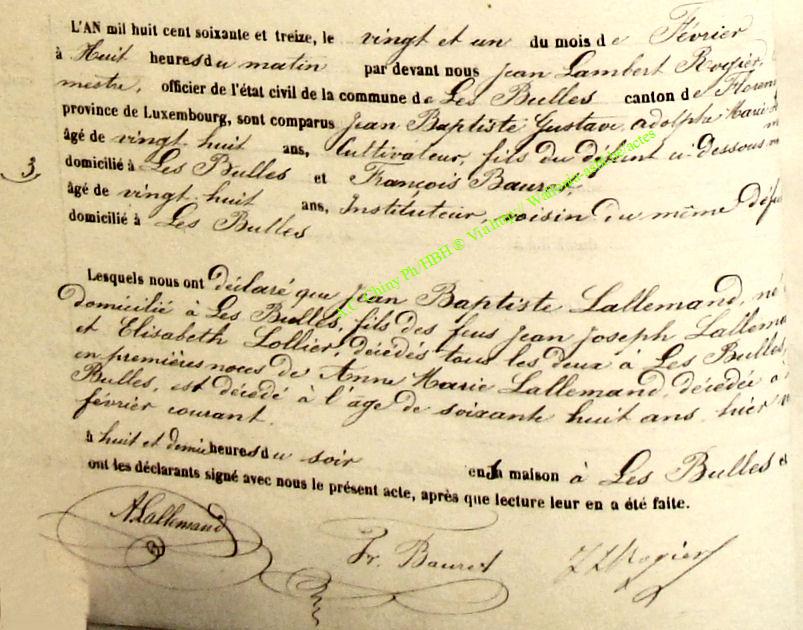 L'AN mil huit cent soixante et treize, le vingt et un du mois de Février
à Huit heures du matin par devant nous Jean Lambert Rogier,
mestre, officier de l'état civil de la commune de Les Bulles canton de Floren
province de Luxembourg, sont comparus Jean Baptiste Gustave adolphe Marie
âgé de vingt huit ans, Cultivateur, fils du défunt ci-dessous
3
domicilié à Les Bulles et François Bauret,
âgé de vingt huit ans, Instituteur, voisin du même défu
domicilié à Les Bulles
Lesquels nous ont déclaré que Jean Baptiste Lallemand, né
domicilié à Les Bulles, fils des feus Jean Joseph Lallema
et Elisabeth Lollier, décédés tous les deux à Les Bulles,
en premières noces de Anne Marie Lallemand, décédée à
Bulles, est décédé à l'âge de soixante huit ans, hier
février courant.
à huit et demie heures du soir en sa maison à Les Bulles et
ont les déclarants signé avec nous le présent acte, après que lecture leur en a été faite.
A Lallemand
Fr. Bauret
J L Rogier
Chiny Ph/HBH ©